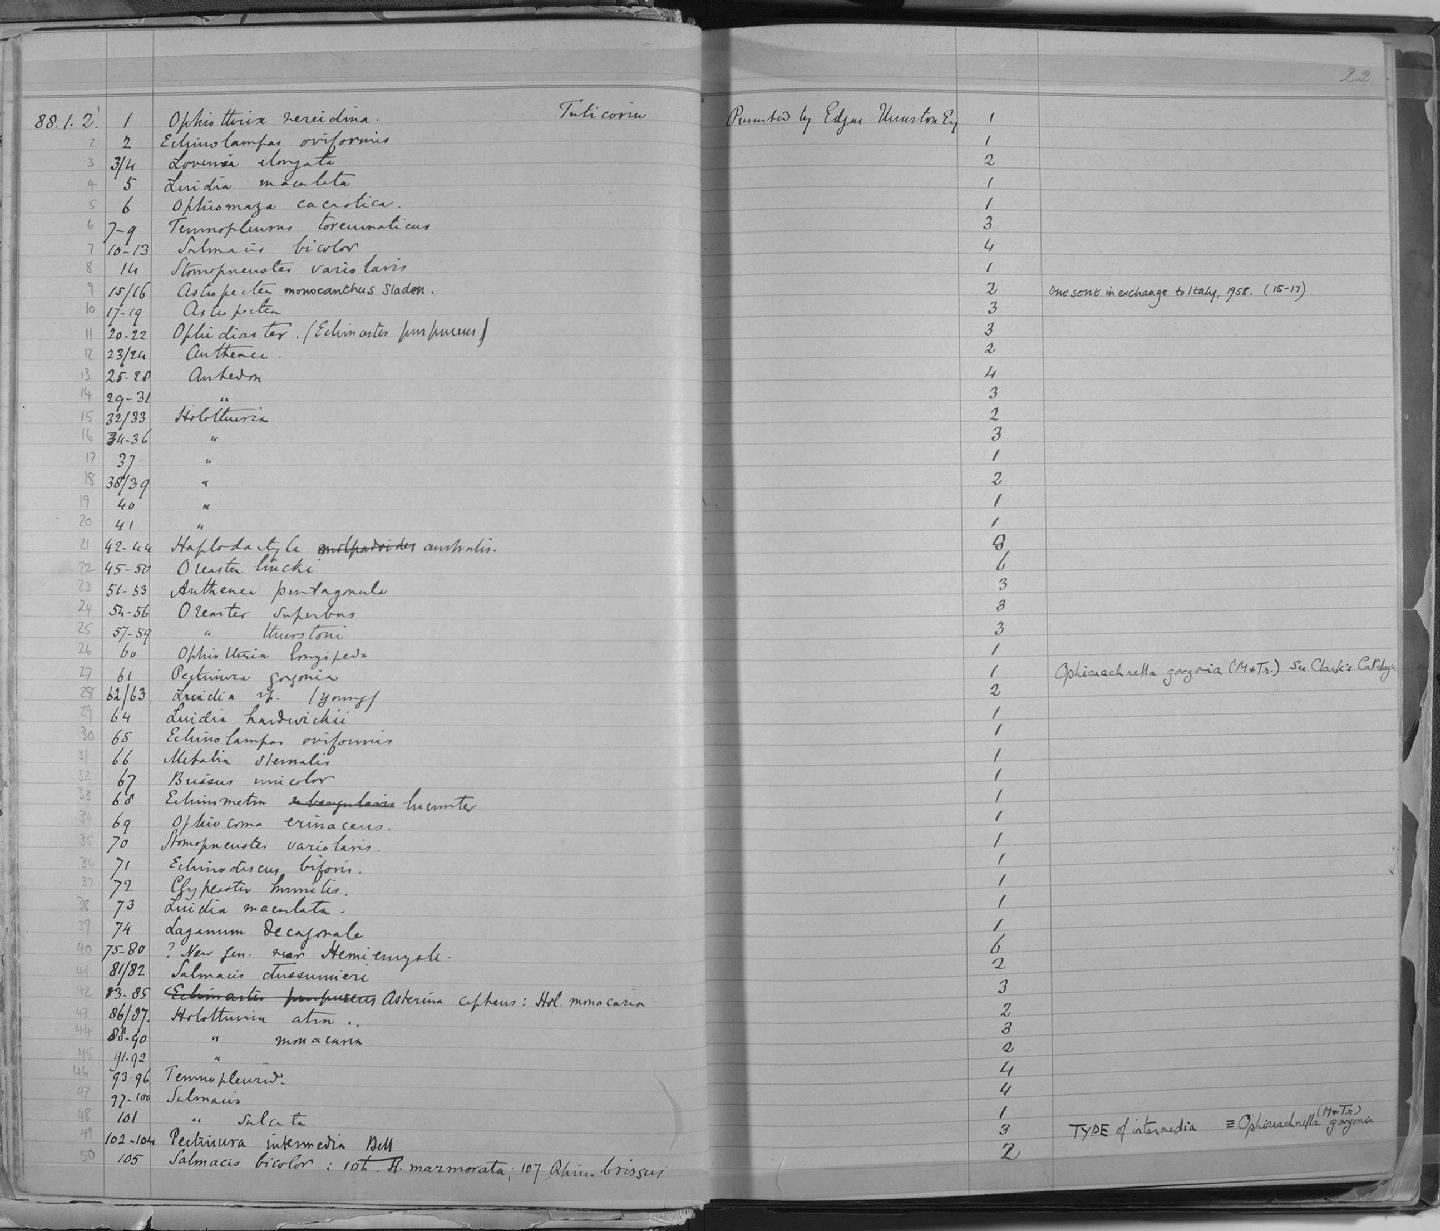 22
88.1.2. 1 Ophiothrix nereidina. Tuticorin Presented by Edgar Thurston Esq 1
2 2 Echinolampas oviformis 1
3 3/4 Lovenia elongata 2
4 5 Luidia maculata 1
5 6 Ophiomaza cacaotica. 1
6 7-9 Temnopleurus toreumaticus 3
7 10-13 Salmacis bicolor 4
8 14 Stomopneustes variolaris 1
9 15/16 Astropecten monocanthus Sladen. 2 One sent in exchange to Italy, 1958. (15-17)
10 17-19 Astropecten 3
11 20-22 Ophidiaster. (Echinaster purpureus) 3
12 23/24 Anthenea. 2
13 25-28 Antedon 4
14 29-31 " 3
15 32/33 Holothuria 2
16 34-36 " 3
17 37 " 1
18 38/39 " 2
19 40 " 1
20 41 " 1
21 42-44 Haplodactyla molpadoides australis. 3
22 45-50 Oreaster lincki 6
23 51-53 Anthenea pentagonula 3
24 54-56 Oreaster superbus 3
25 57-59 " thurstoni 3
26 60 Ophiothrix longipeda 1
27 61 Pectinura gorgonia 1 Ophiarachnella gorgonia (M+Tr.) See Clark's Catalogue
28 62/63 Luidia sp. (young) 2
29 64 Luidia hardwickii 1
30 65 Echinolampas oviformis 1
31 66 Metalia sternalis 1
32 67 Brissus unicolor 1
33 68 Echinometra subangularis lucunter 1
34 69 Ophiocoma erinaceus. 1
35 70 Stomopneustes variolaris. 1
36 71 Echinodiscus biforis. 1
37 72 Clypeaster humilis. 1
38 73 Luidia maculata. 1
39 74 Laganum decagonale 1
40 75-80 ? New gen. near Hemieuryale. 6
41 81/82 Salmacis dussumieri 2
42 83-85 Echinaster purpureus Asterina cepheus: Hol. monacaria 3
43 86/87. Holothuria atra .. 2
44 88-90 " monacaria 3
45 91-92 " 2
46 93-96 Temnopleurid. 4
47 97-100 Salmacis 4
48 101 " sulcata 1
49 102-104 Pectinura intermedia Bell 3 TYPE of intermedia ≡ Ophiarachnella gorgonia (M+Tr)
50 105 Salmacis bicolor: 106 H. marmorata; 107 brissus 2